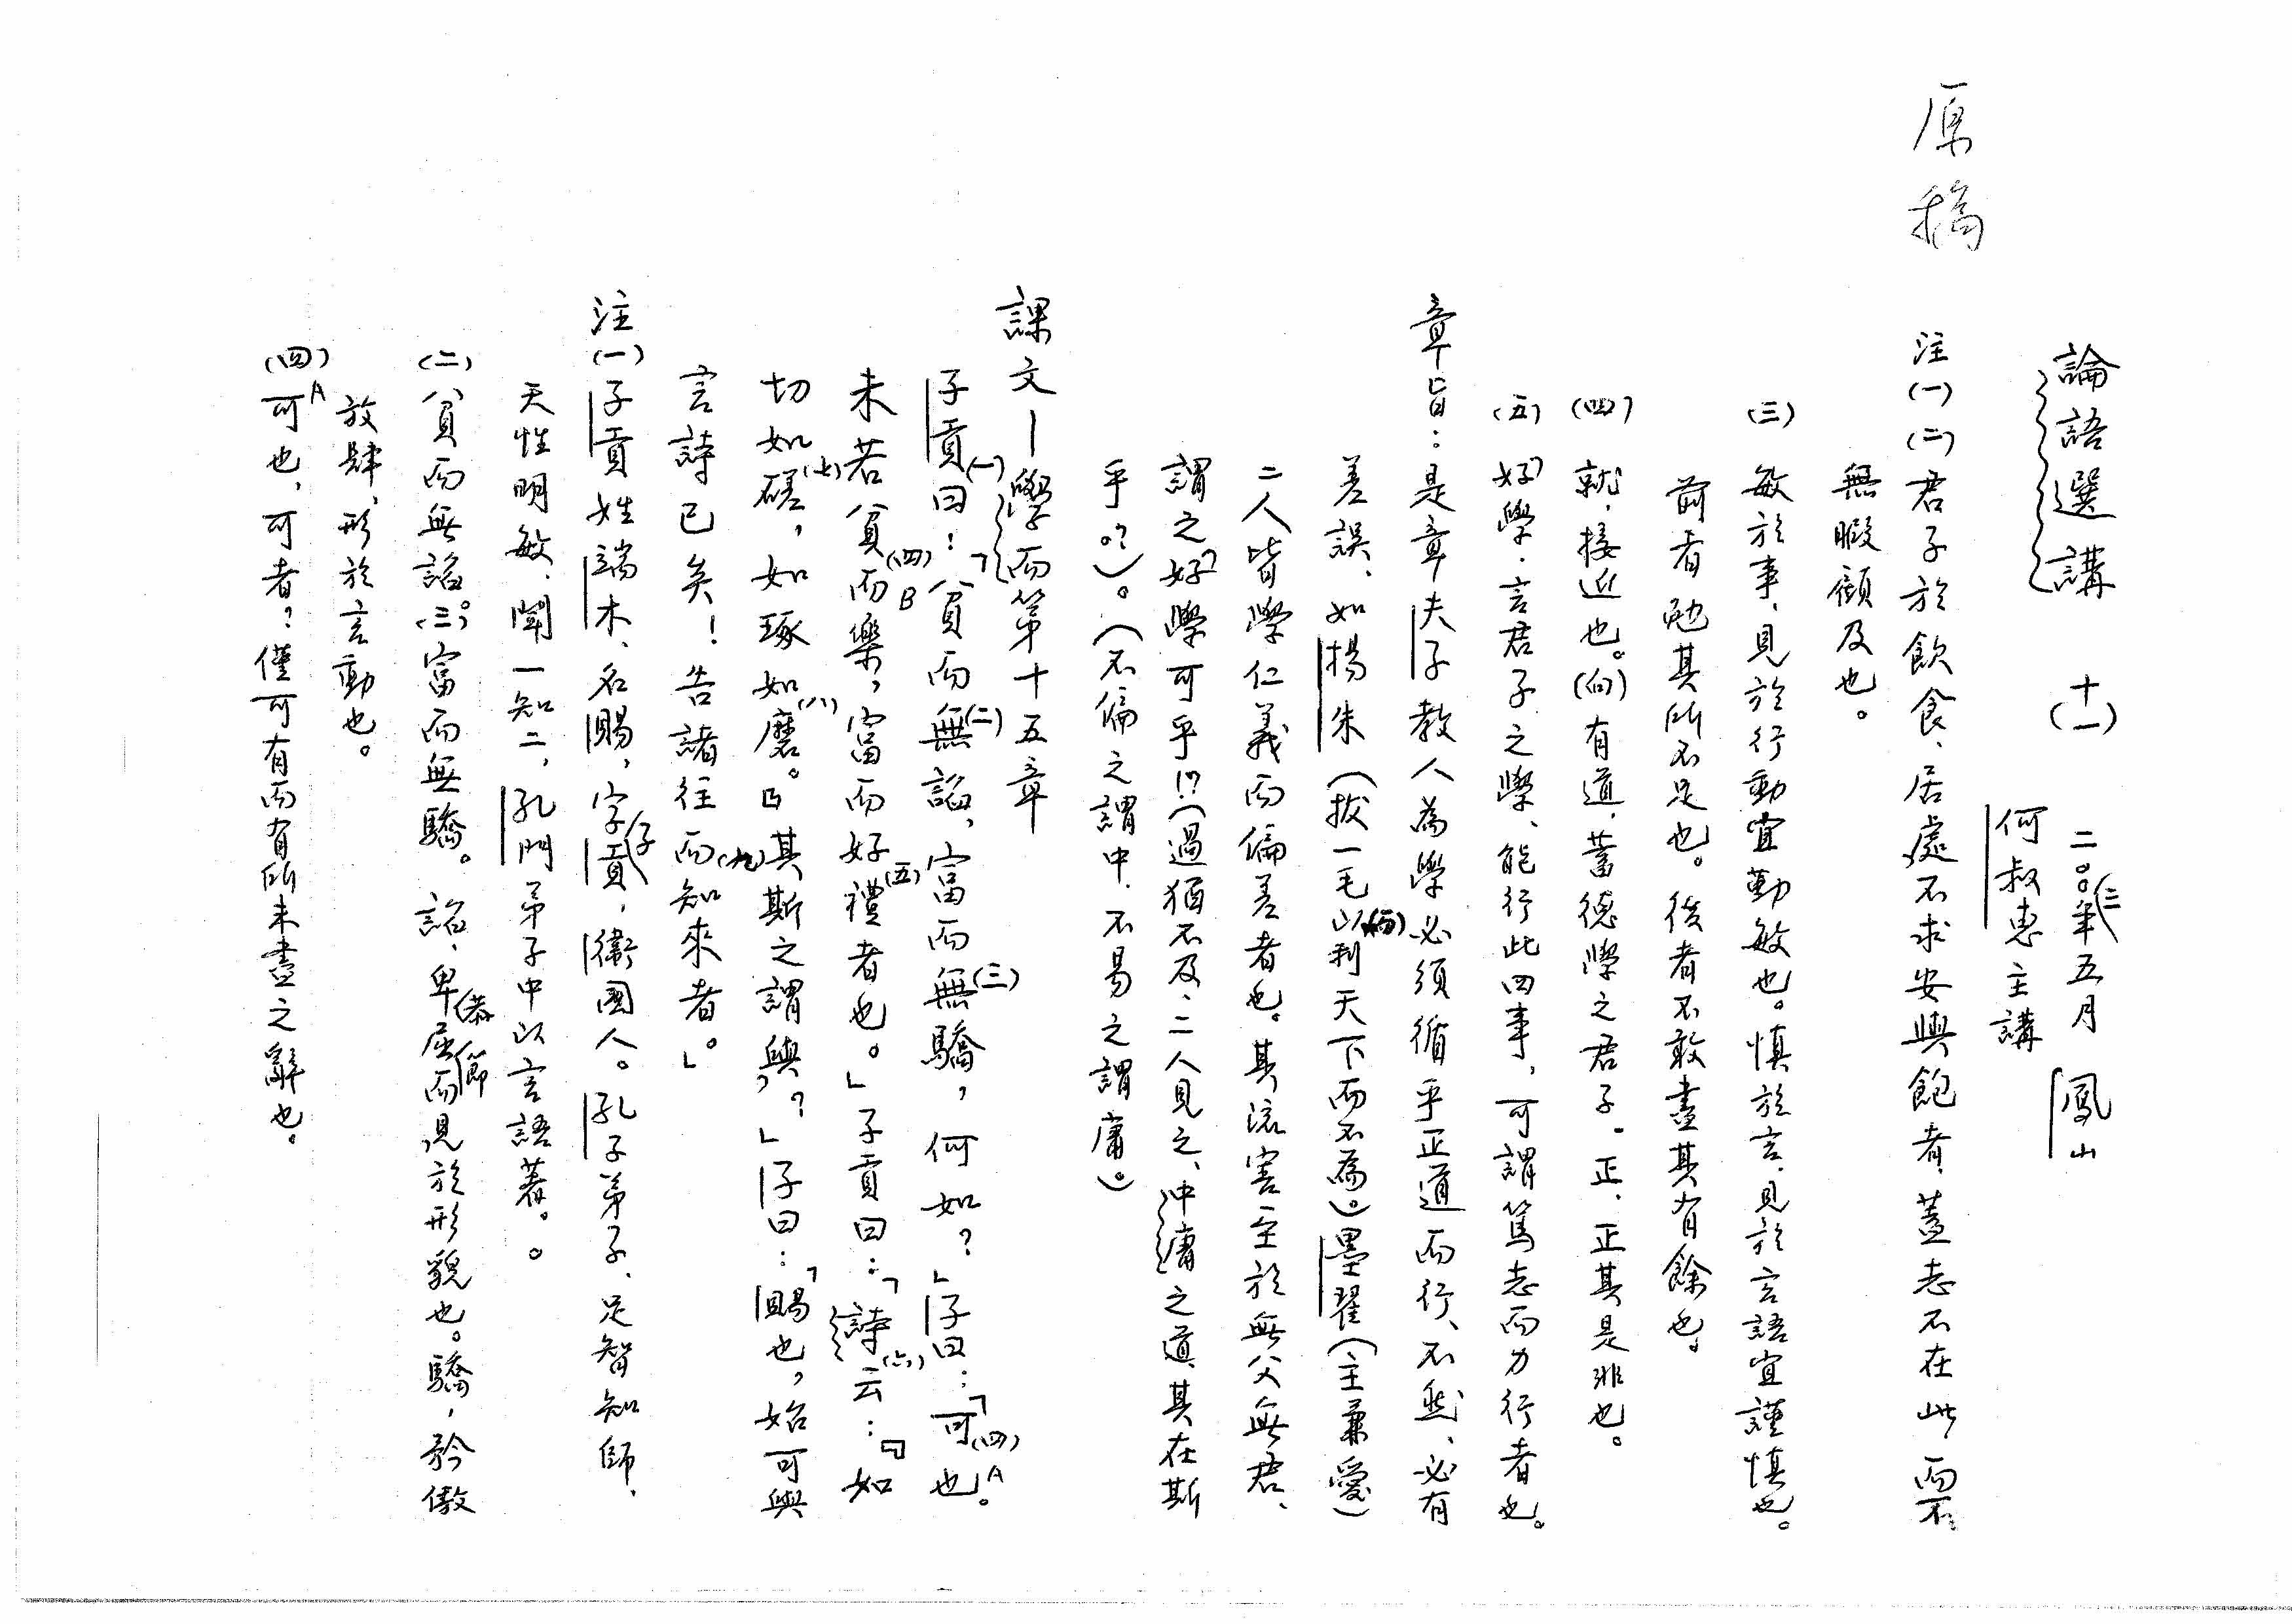 原稿
論語選講 (十一) 二〇〇三年五月 鳳山
何叔惠主講
注(一)(二)君子於飲食、居處不求安與飽者、蓋志不在此而不
無暇顧及也。
(三)敏於事、見於行動宜勤敏也。慎於言、見於言語宜謹慎也。
前者勉其所不足也。後者不敢盡其有餘也。
(四)就、接近也。(向)有道、蓄德學之君子。正、正其是非也。
(五)好學、言君子之學、能行此四事，可謂篤志而力行者也。
章旨：是章夫子教人為學必須循乎正道而行、不然、必有
差誤、如楊朱(拔一毛以利天下而不為。)墨翟(主兼愛)
二人皆學仁義而偏差者也。其流害至於無父無君、
謂之好學可乎!?(過猶不及、二人見之、中庸之道、其在斯
乎。?)。(不偏之謂中、不易之謂庸。)
課文—學而第十五章
子貢(一)曰：「貧而無(二)諂，富而無(三)驕，何如？」子曰：「可(四)A也。
未若貧(四)B而樂，富而好禮(五)者也。」子貢曰：「詩云(六)：『如
切如磋(七)，如琢如磨(八)。』其(九)斯之謂與，？」子曰：「賜也，始可與
言詩已矣！告諸往而知來者。」
注(一)子貢姓端木、名賜，字子貢，衛國人。孔子弟子、足智知師、
天性明敏、聞一知二，孔門弟子中以言語著。。
(二)貧而無諂。(三)富而無驕。諂、卑恭屈節而見於形貌也。驕，矜傲
放肆、形於言動也。
(四)A可也，可者？僅可有而有所未盡之辭也。